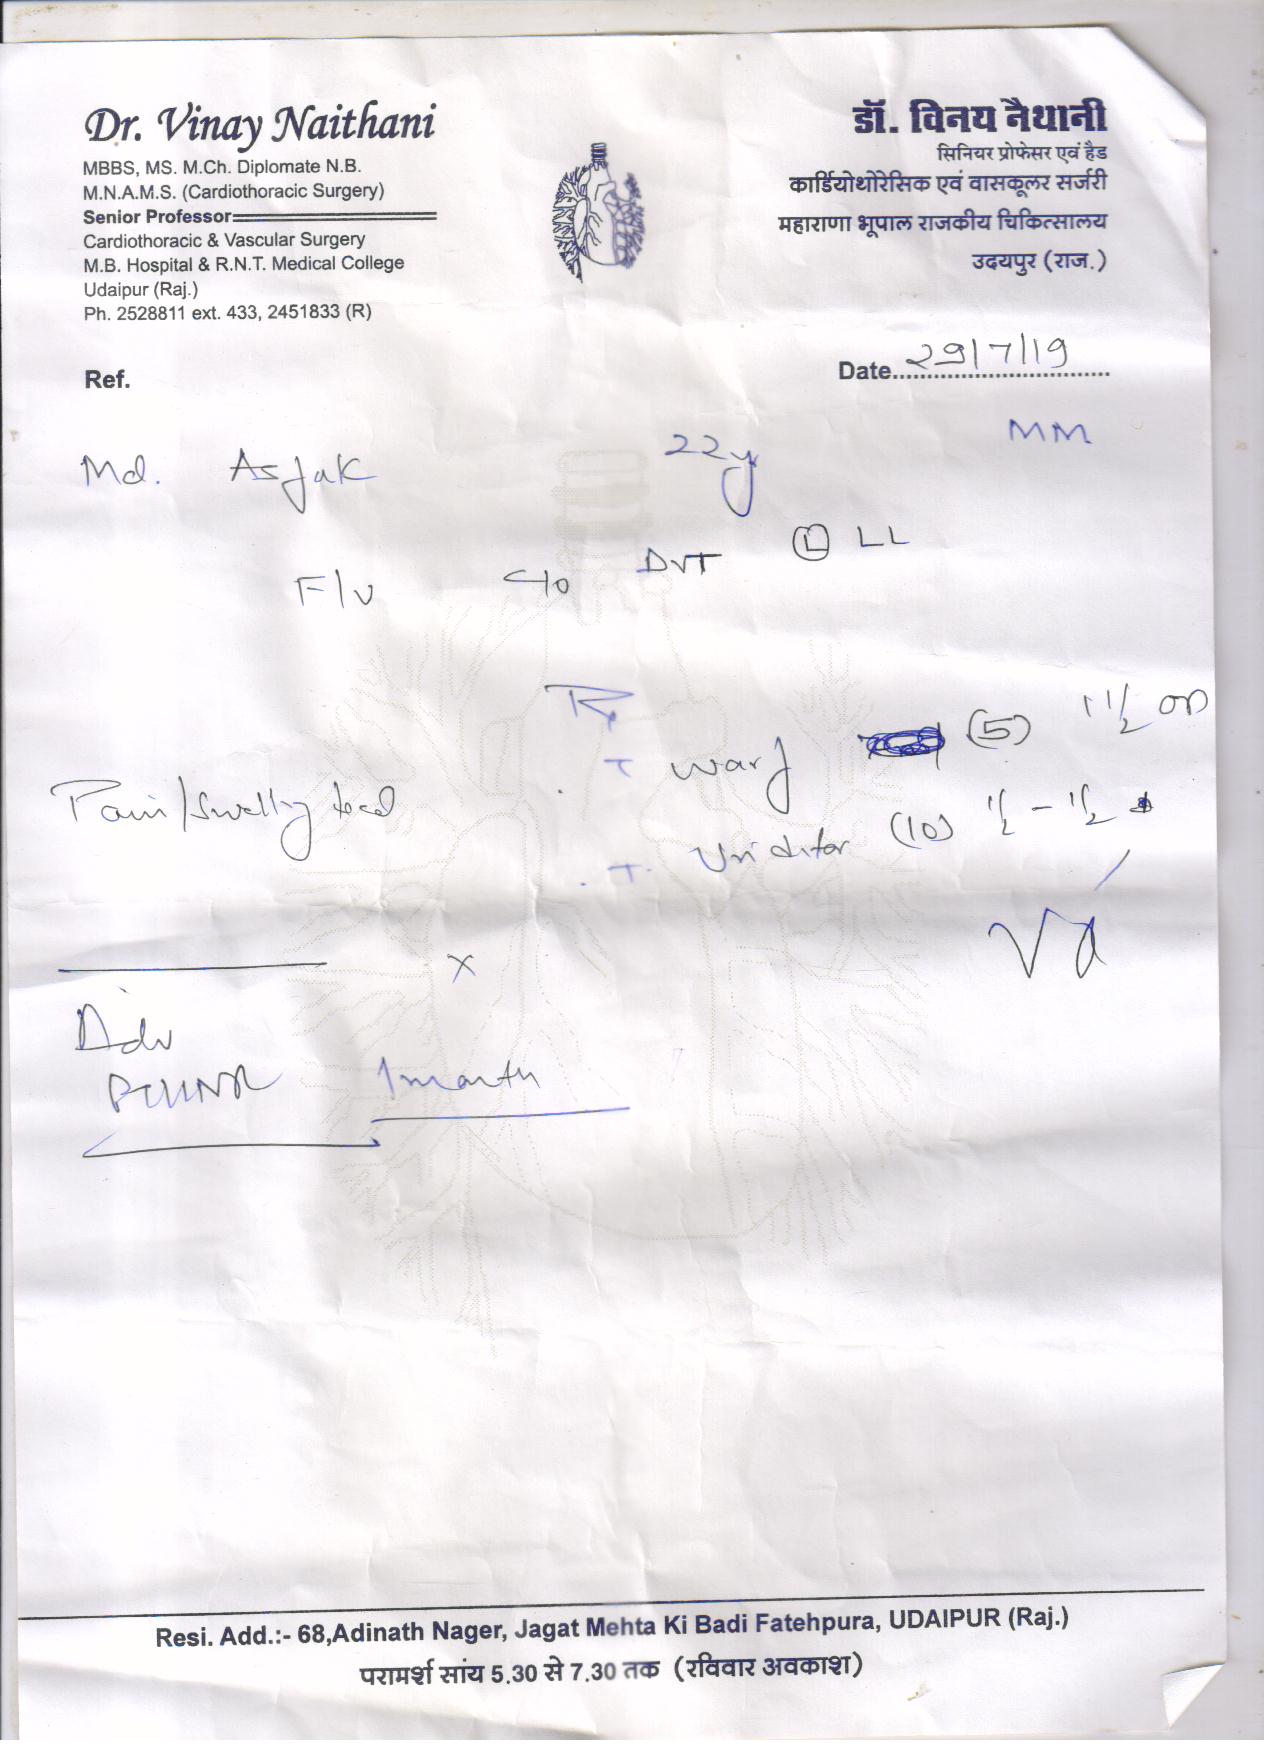 Dr. Vinay Naithani
MBBS, MS. M.Ch. Diplomate N.B.
M.N.A.M.S. (Cardiothoracic Surgery)
Senior Professor
Cardiothoracic & Vascular Surgery
M.B. Hospital & R.N.T. Medical College
Udaipur (Raj.)
Ph. 2528811 ext. 433, 2451833 (R)
डॉ. विनय नैथानी
सिनियर प्रोफेसर एवं हैड
कार्डियोथोरेसिक एवं वासकूलर सर्जरी
महाराणा भूपाल राजकीय चिकित्सालय
उदयपुर (राज.)
Ref.
Date 29/7/19
Md. Asfak 22y MM
F/U C/o DVT Ⓛ LL
Rx
T warf (5) 1 1/2 OD
Pain/Swelling
T. (10) 1/2 - 1/2
x
Adv
PT/INR 1 month
Resi. Add.:- 68,Adinath Nager, Jagat Mehta Ki Badi Fatehpura, UDAIPUR (Raj.)
परामर्श सांय 5.30 से 7.30 तक (रविवार अवकाश)